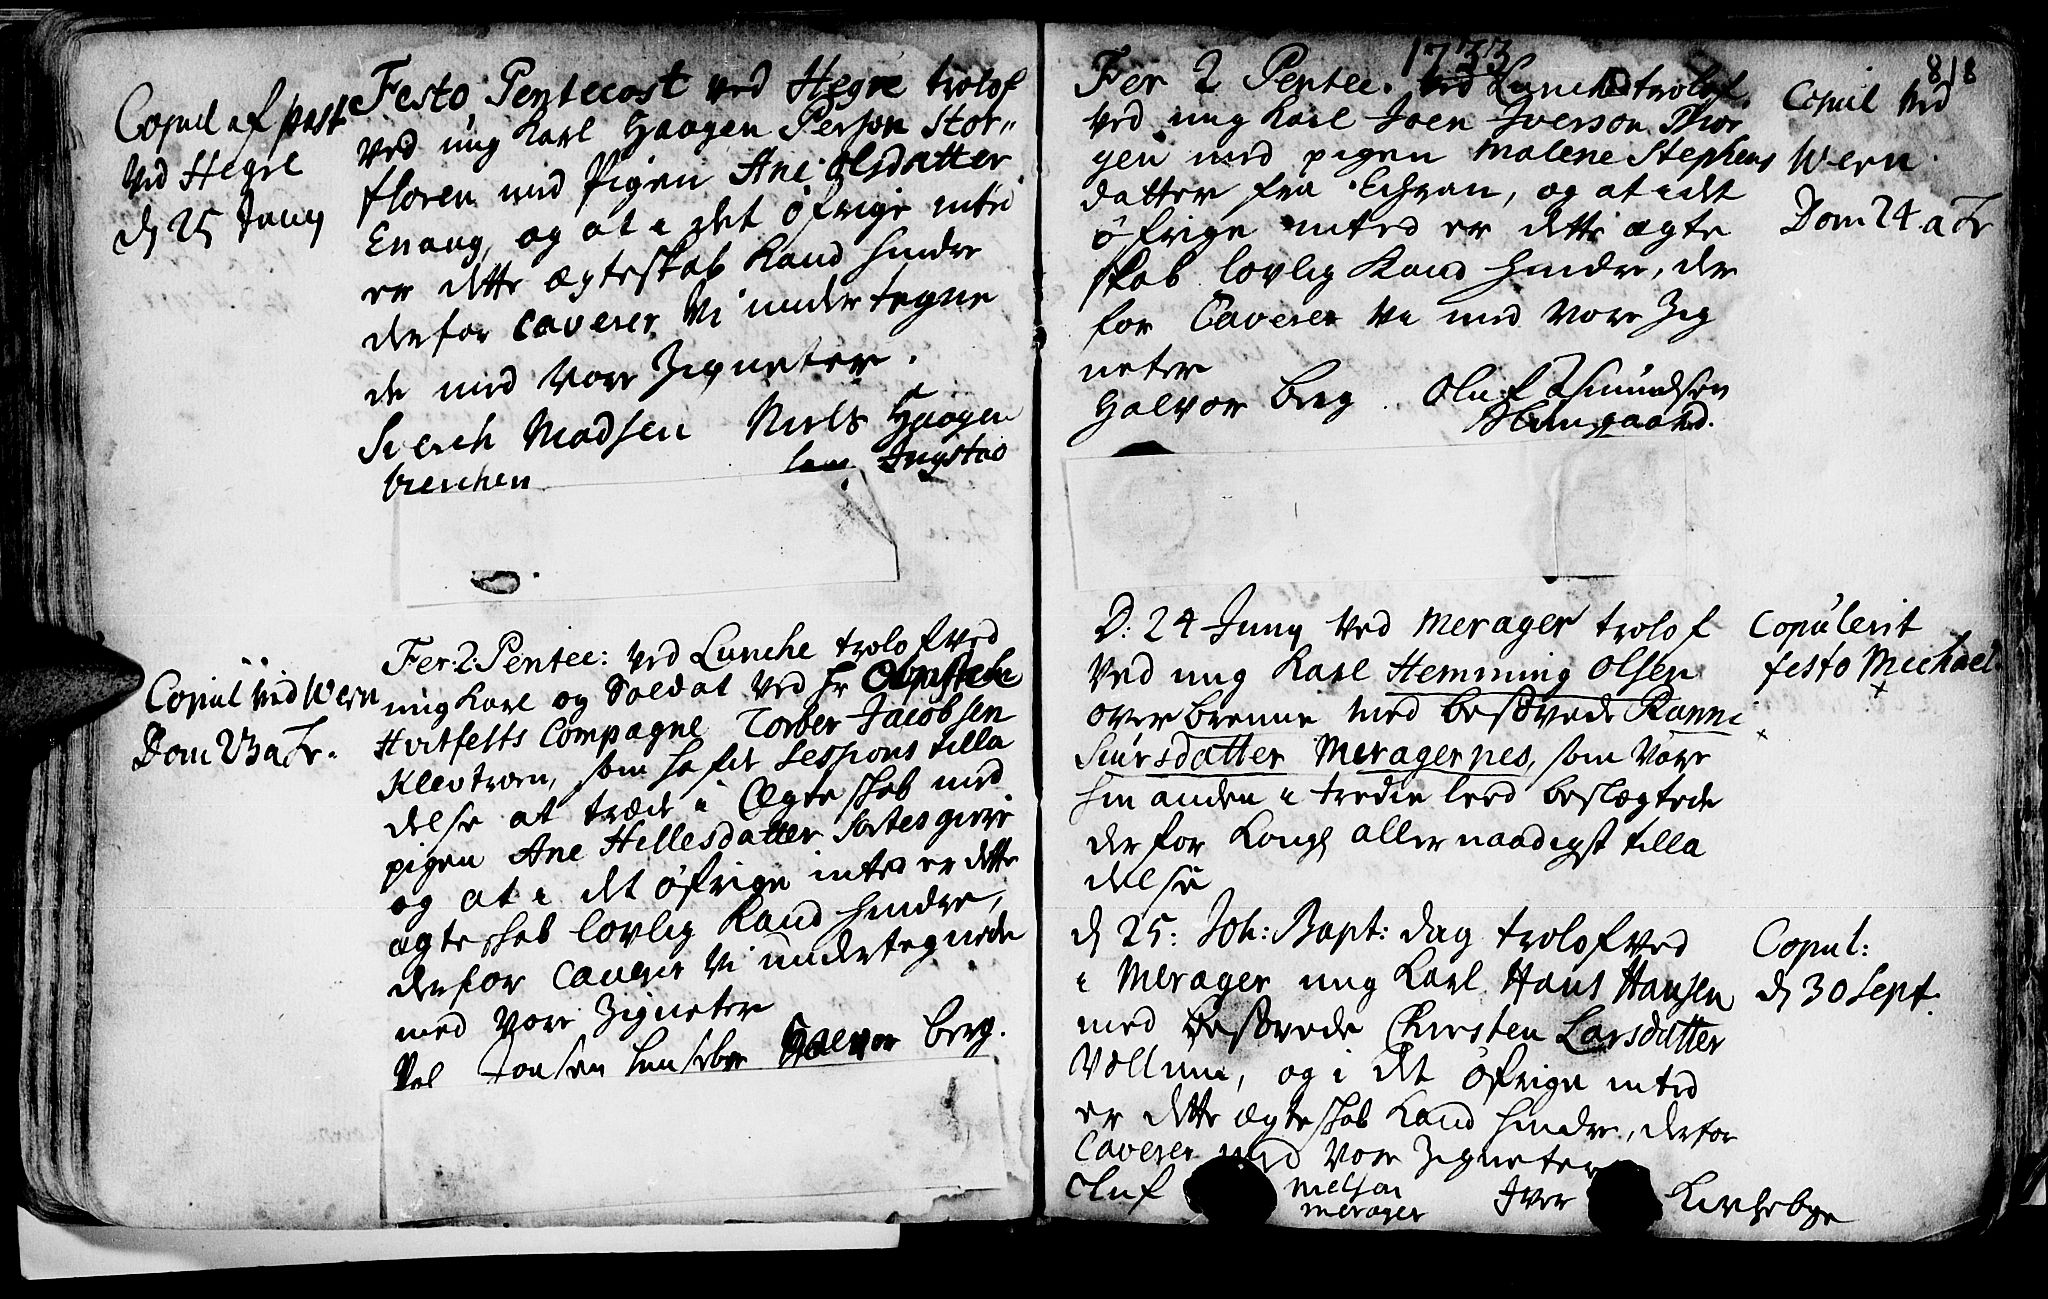 Copul af past
Ved Hegre
d 25 Juny
Festo Pentecost ved Hegre trolof
Ved ung Karl Haagen Person Stor„
floren med Pigen Ane Olsdatter
Enaug, og at i det öfrige inted
er dette ægteskab kand hindre
derfor caverer Vi undertegne
de med Vore Zigneter.
Sierch Madsen Niels Haagen
bierchen sen Ingstad
Copul Ved Wern
Dom 23 a Tr.
Fer: 2: Pentec: ved Lunche trolofved
ung karl og Soldat ved Hr
Hvitfelts Compagne Torber Jacobsen
Klevtroen, som hafer Sessions tilla
delse at træde i Ægteskab med
pigen Ane Hellesdatter
og at i det öfrige inted er dette
ægteskab lovlig kand hindre,
derfor caverer Vi undertegnede
med Vore Zigneter
Joensen Halvor Berg.
1733
818
Fer 2 Pentec. ved Lunche trolof.
Ved ung karl Joen Iverson Thor
gen med pigen Malene Stephens
datter fra Echran, og at i det
öfrige inted er dette ægte
skab lovlig kand hindre, der
for Caverer Vi med Vore Zig
neter
Halvor Berg. Oluf Asmundsen

Copul Ved
Wern.
Dom 24 a Tr
D: 24 Juny Ved Merager trolof
Ved ung karl Hemming Olsen
overbrenne med besovede Ranni
Siursdatter Meragernes, som Vare
hinanden i tredie leed beslægtede
derfor Kongl allernaadigst tilla
delse
Copulerit
festo Michael
d 25: Joh: Bapt: dag trolofved
i Merager ung karl Hans Hansen
med besovede Chiersten Larsdatter
Vollum, og i det öfrige inted
er dette ægteskab kand hindre, derfor
Caverer med Vore Zigneter
Oluf Nielson Iver Kirchebye
merager
Copul:
d 30 Sept.